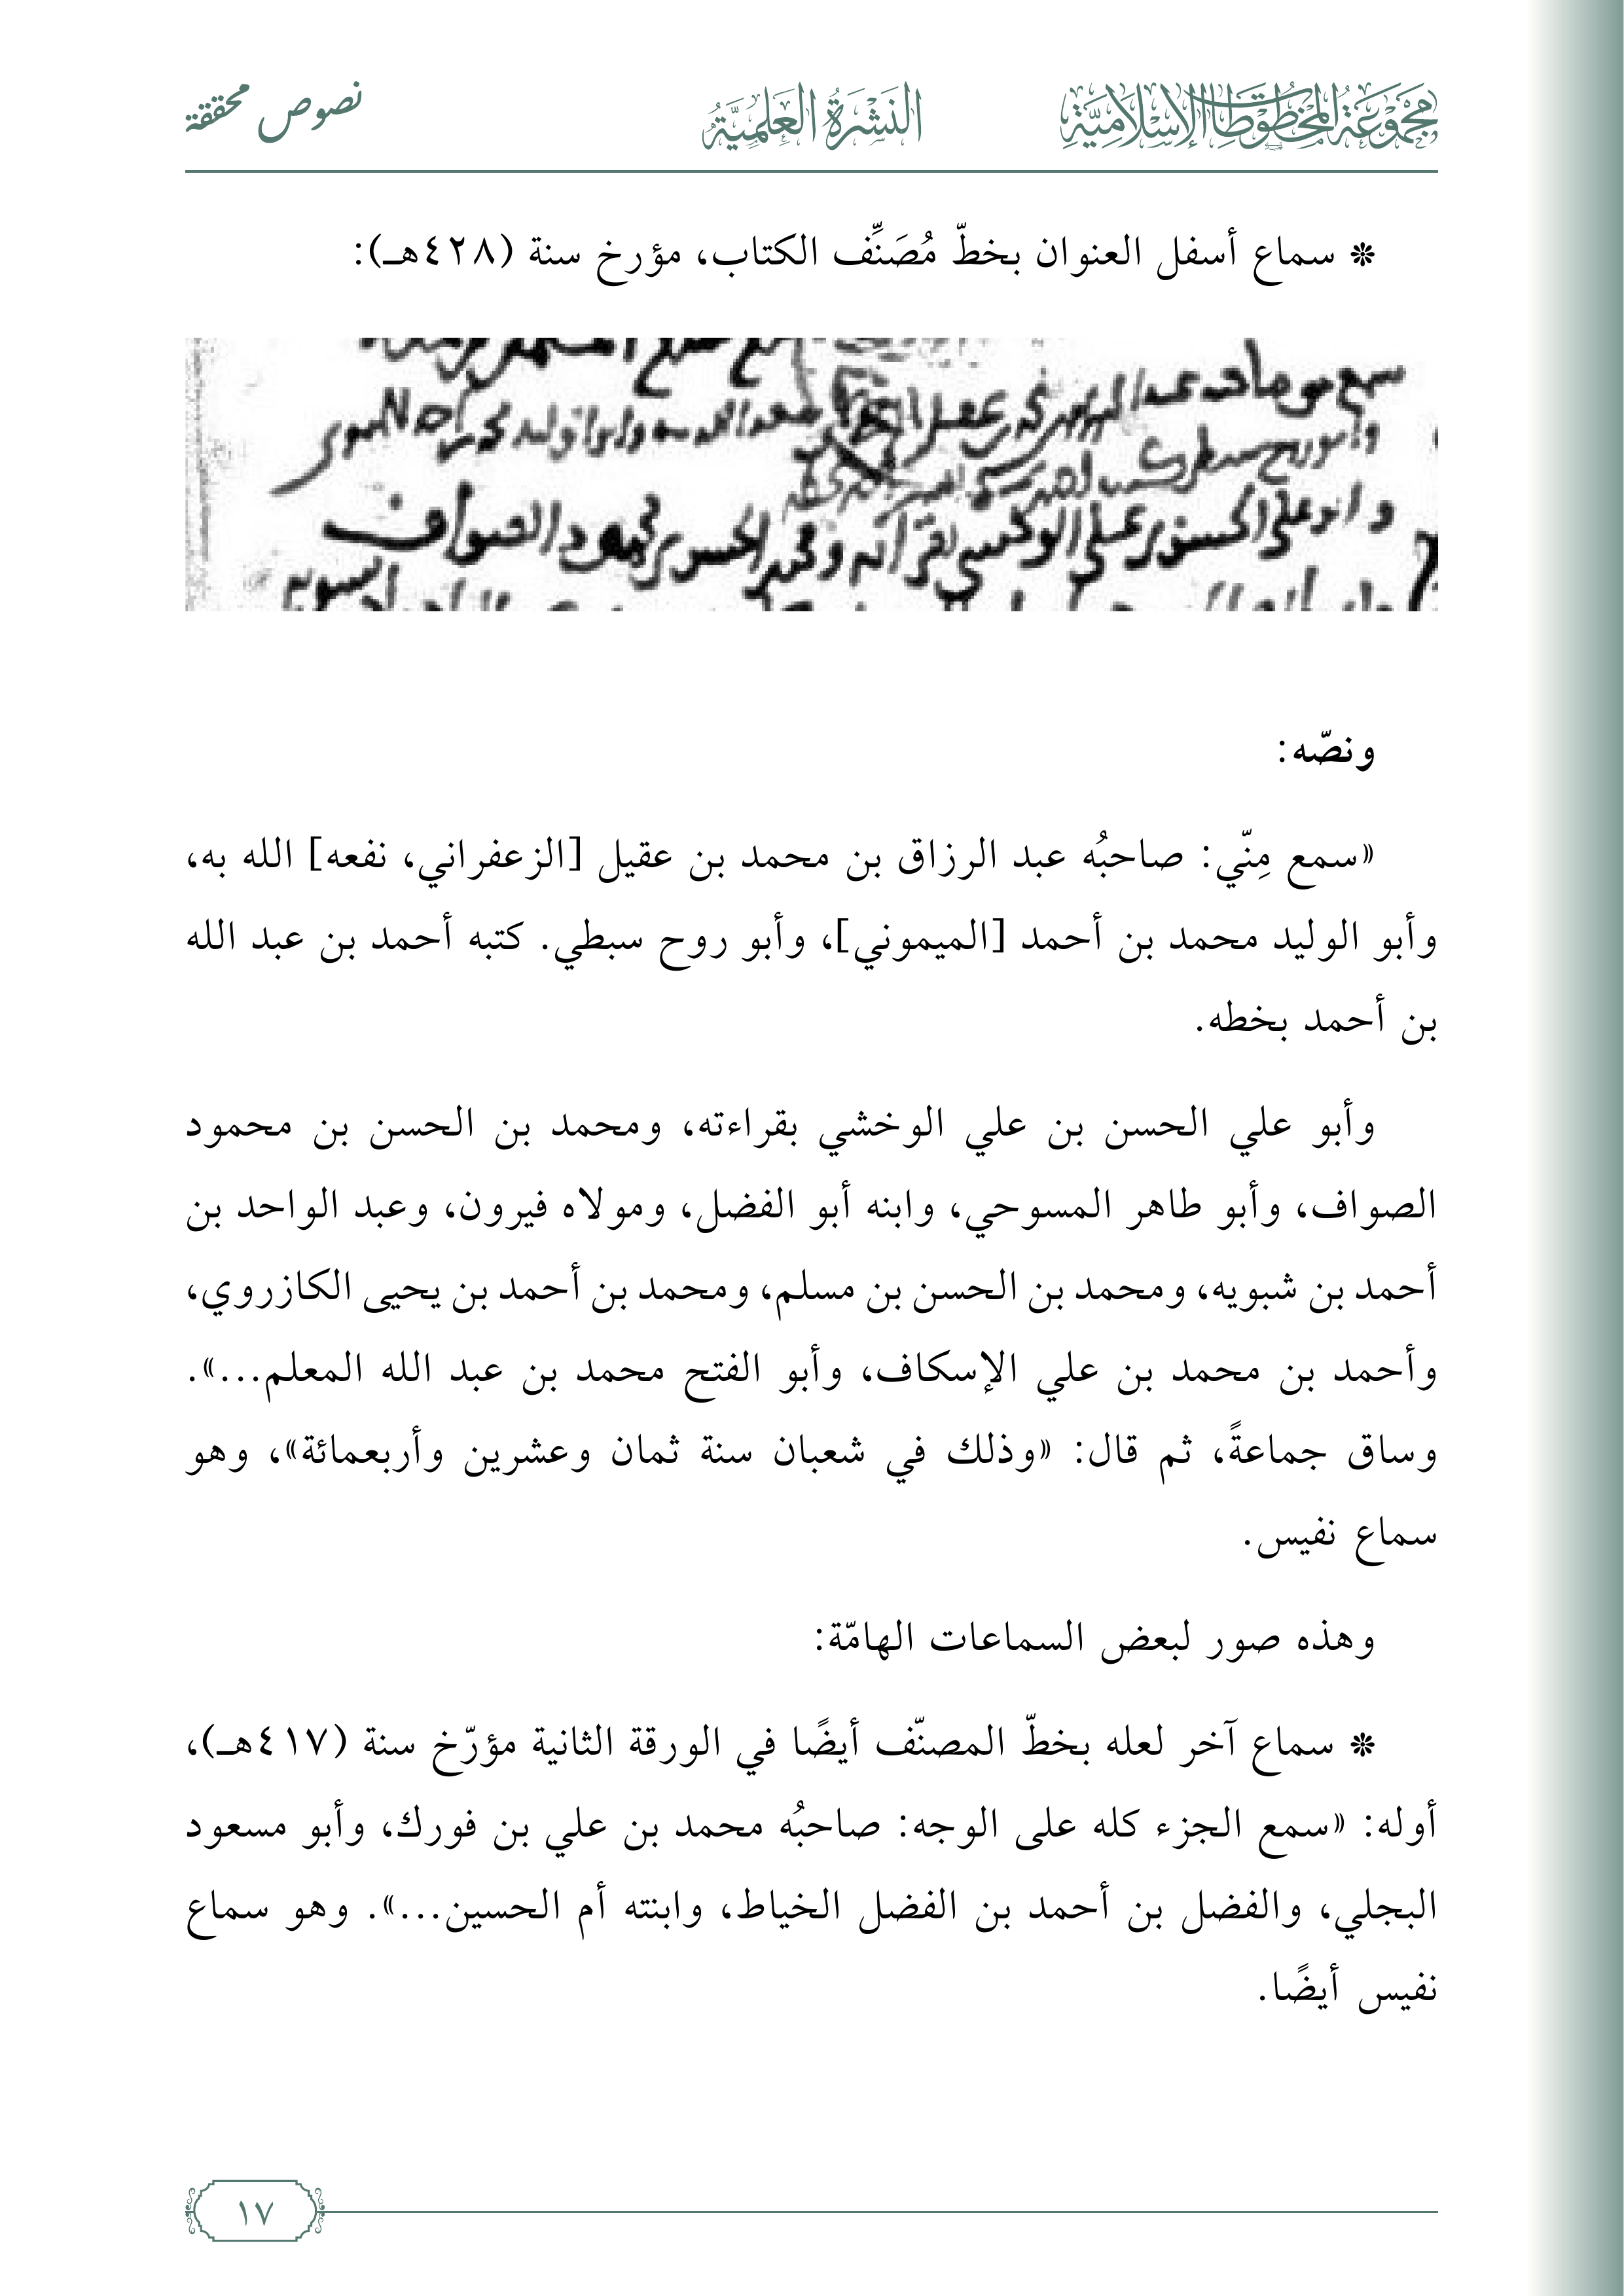 مجموعة المخطوطات الإسلامية
النشرة العلمية
نصوص محققة
* سماع أسفل العنوان بخطّ مُصَنِّف الكتاب، مؤرخ سنة (٤٢٨هـ):
ونصّه:
«سمع مِنّي: صاحبُه عبد الرزاق بن محمد بن عقيل [الزعفراني، نفعه] الله به،
وأبو الوليد محمد بن أحمد [الميموني]، وأبو روح سبطي. كتبه أحمد بن عبد الله
بن أحمد بخطه.
وأبو علي الحسن بن علي الوخشي بقراءته، ومحمد بن الحسن بن محمود
الصواف، وأبو طاهر المسوحي، وابنه أبو الفضل، ومولاه فيرون، وعبد الواحد بن
أحمد بن شبويه، ومحمد بن الحسن بن مسلم، ومحمد بن أحمد بن يحيى الكازروي،
وأحمد بن محمد بن علي الإسكاف، وأبو الفتح محمد بن عبد الله المعلم...».
وساق جماعةً، ثم قال: «وذلك في شعبان سنة ثمان وعشرين وأربعمائة»، وهو
سماع نفيس.
وهذه صور لبعض السماعات الهامّة:
* سماع آخر لعله بخطّ المصنّف أيضًا في الورقة الثانية مؤرّخ سنة (٤١٧هـ)،
أوله: «سمع الجزء كله على الوجه: صاحبُه محمد بن علي بن فورك، وأبو مسعود
البجلي، والفضل بن أحمد بن الفضل الخياط، وابنته أم الحسين...». وهو سماع
نفيس أيضًا.
١٧